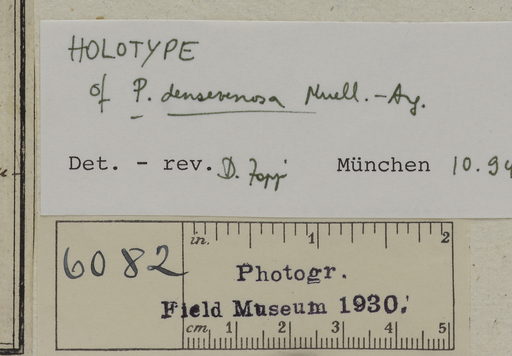 HOLOTYPE
of P. densevenosa Muell.-Arg.
Det. - rev. D. Zappi München 10.94
in. 1 2
6082
Photogr.
Field Museum 1930.
cm. 1 2 3 4 5